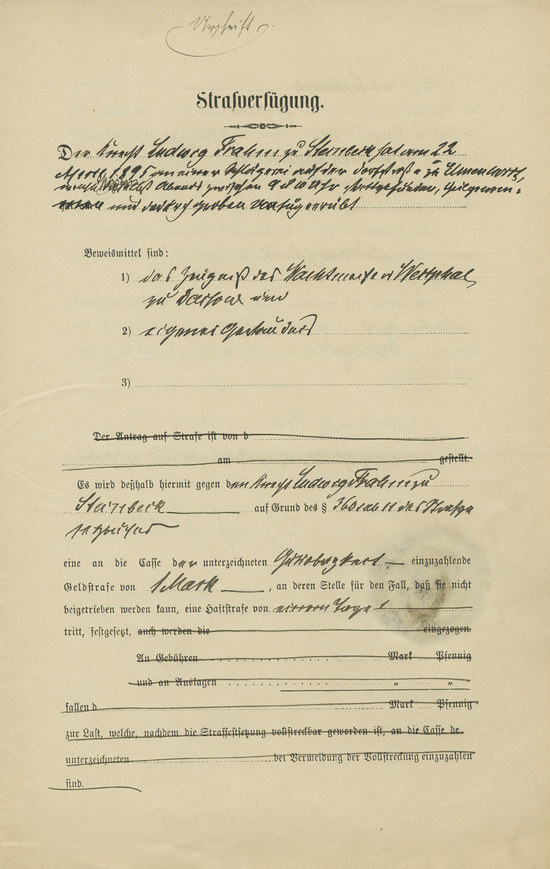 Urschrift
Strafverfügung.
Der Knecht Ludwig Frahm zu Steinbeck hat am 22
1895 an einer Schlägerei auf der Dorfstraße zu
Abends zwischen 9 & 10 Uhr
und dadurch groben Unfug verübt
Beweismittel sind:
1) das Zeugniß des Wachtmeisters Westphal
zu Dassow und
2) eigenes Geständnis
3)
Der Antrag auf Strafe ist von d
am gestellt.
Es wird deßhalb hiermit gegen den Knecht Ludwig Frahm zu
Steinbeck auf Grund des § 360 ad 11 des Strafge
setzbuches
eine an die Casse der unterzeichneten Gutsobrigkeit einzuzahlende
Geldstrafe von 1 Mark, an deren Stelle für den Fall, daß sie nicht
beigetrieben werden kann, eine Haftstrafe von einem Tage
tritt, festgesetzt, auch werden die eingezogen.
An Gebühren Mark Pfennig
und an Auslagen " "
fallen d Mark Pfennig
zur Last, welche, nachdem die Straffestsetzung vollstreckbar geworden ist, an die Casse de
unterzeichneten bei Vermeidung der Vollstreckung einzuzahlen
sind.